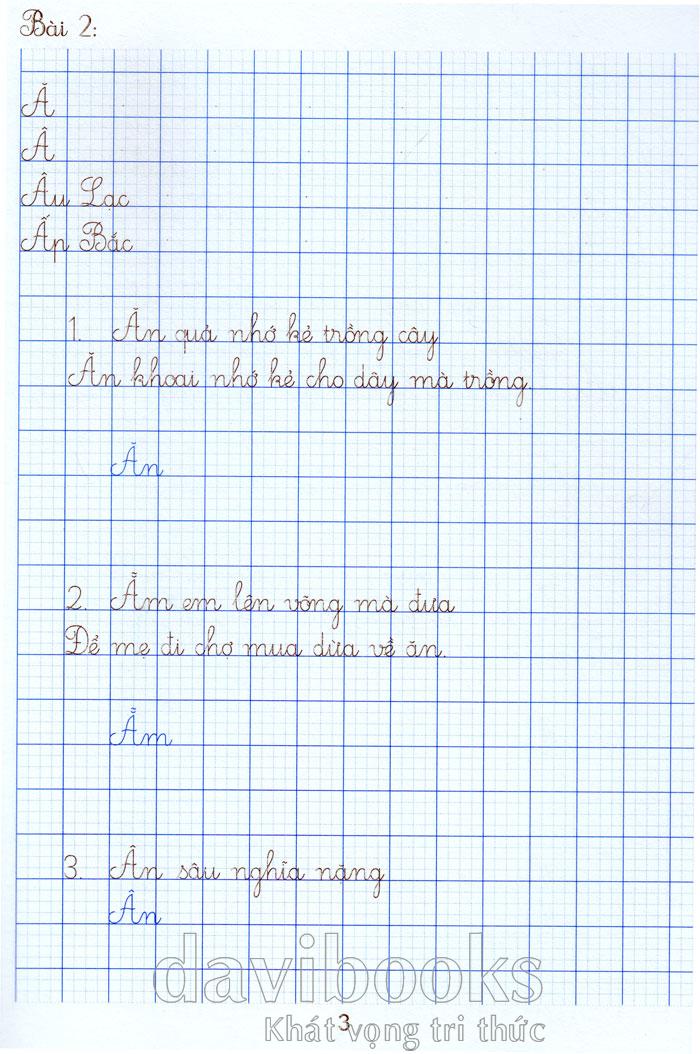 Bài 2:
Ă
Â
Âu Lạc
Ấp Bắc
1. Ăn quả nhớ kẻ trồng cây
Ăn khoai nhớ kẻ cho dây mà trồng.
Ăn
2. Ẵm em lên võng mà đưa
Để mẹ đi chợ mua dừa về ăn.
Ẵm
3 Ân sâu nghĩa nặng
Ân
davibooks
3
Khát vọng tri thức